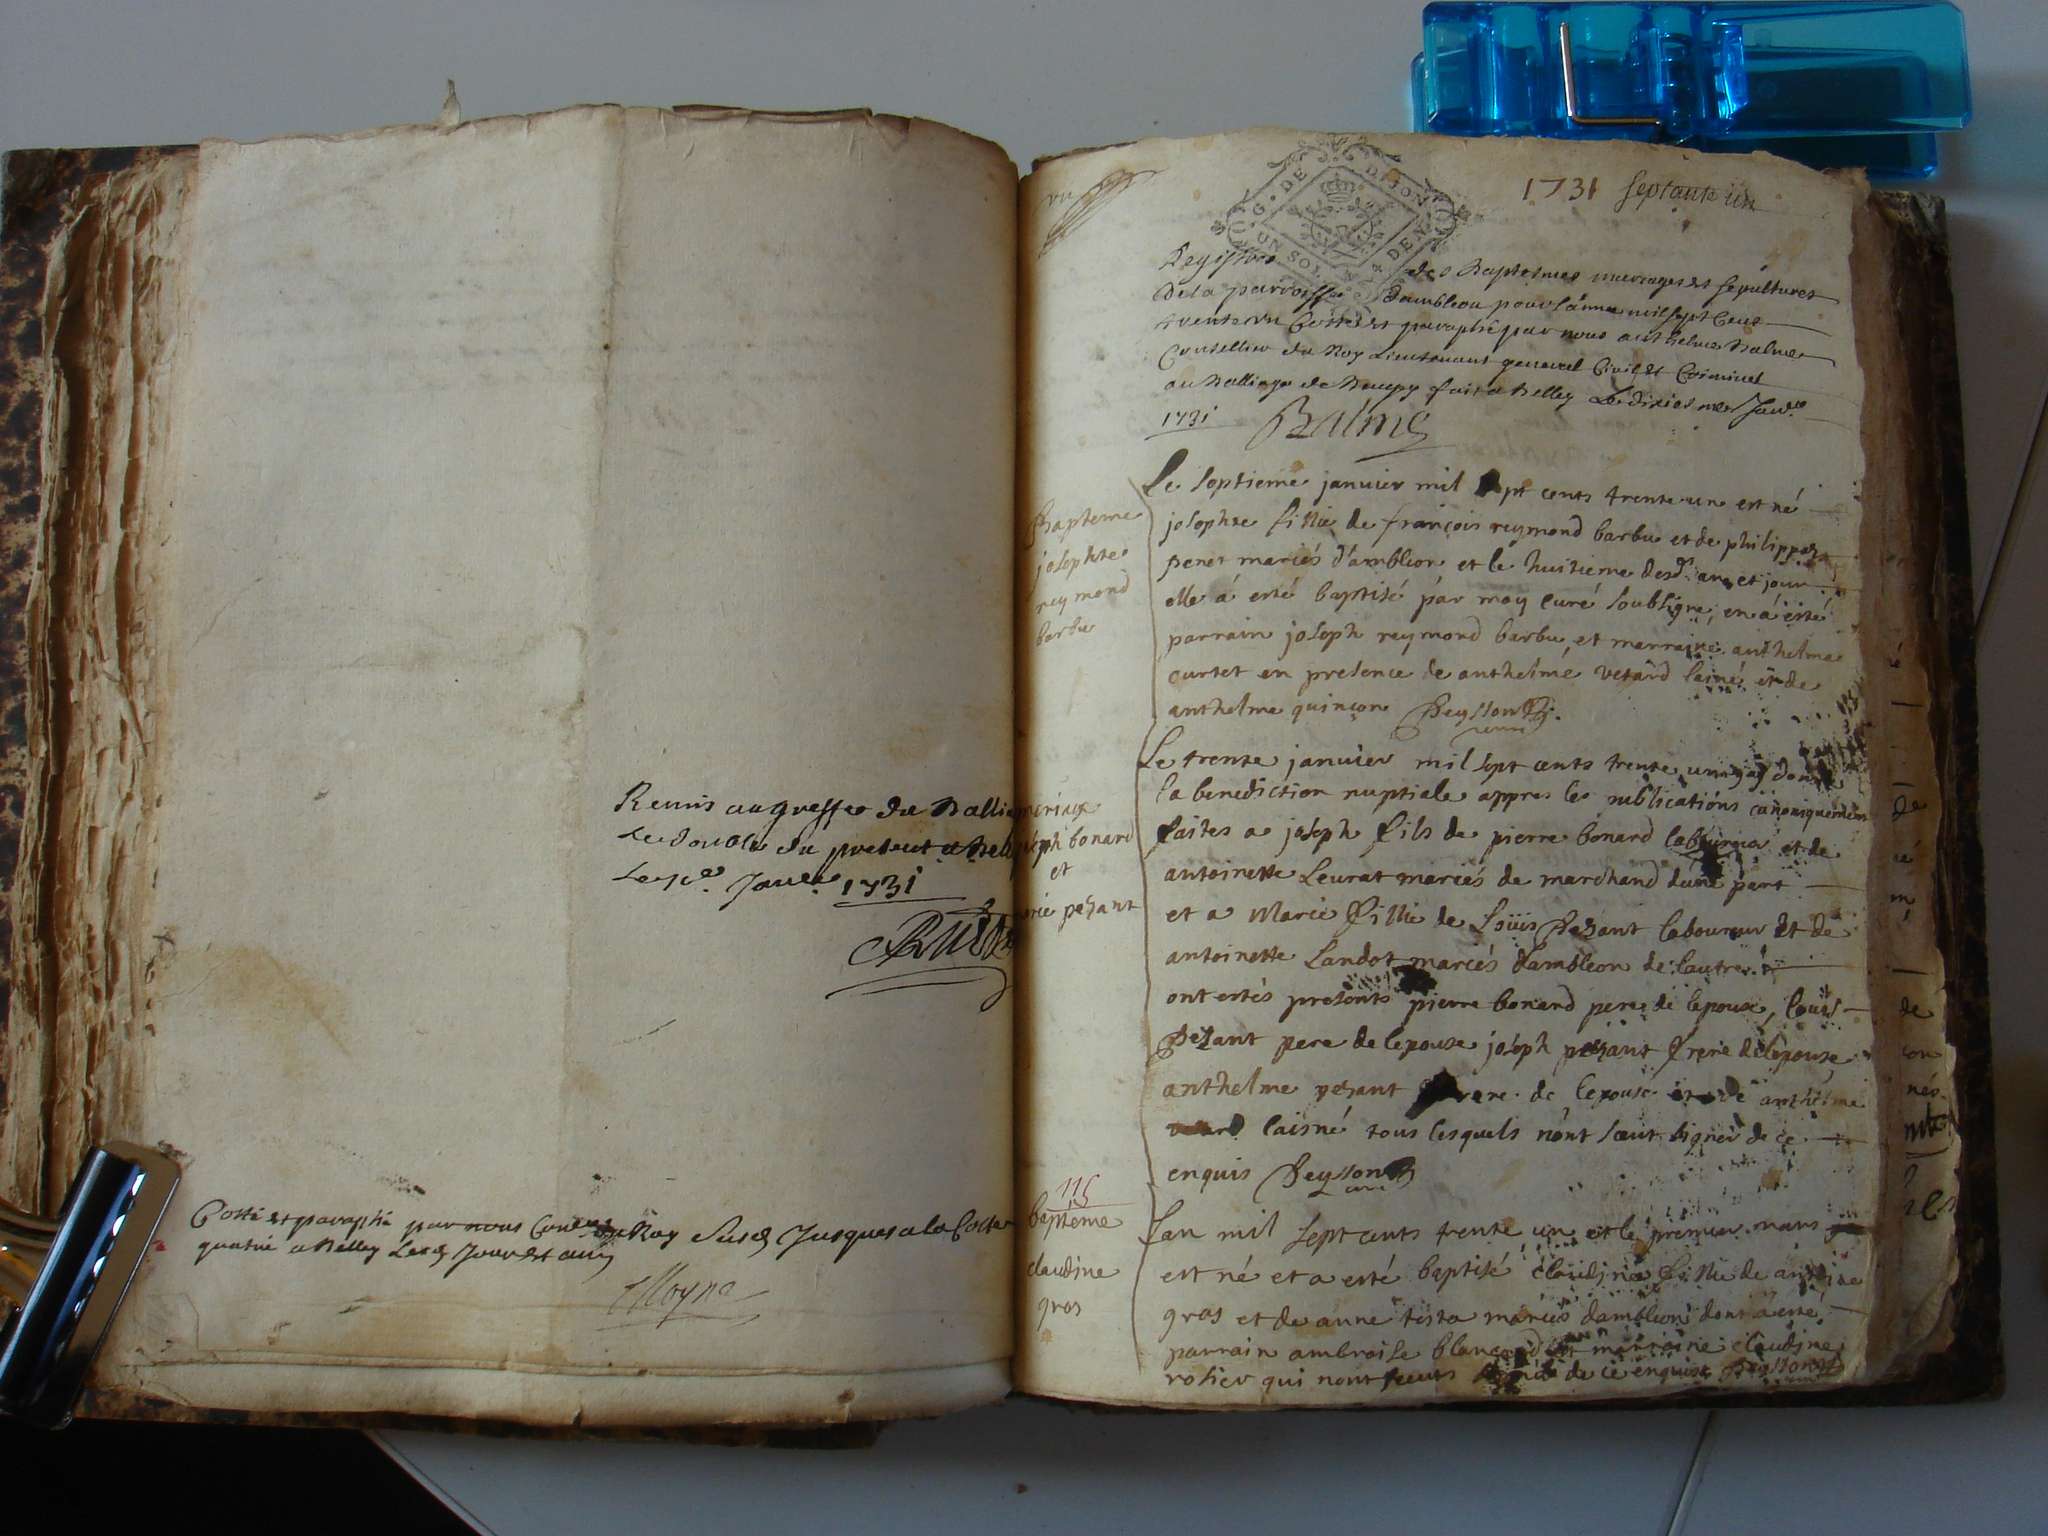 Remis au greffe du Balli
Le double du present a Bel
Le Janer 1731
Cotté et paraphé par nous Coner du Roy Susd Jusques a la Cotte
quatre a Belley Lesd Jour et an
un
G. DE DIJON
UN SOL 4 DEN
1731 septante un
Registre des Baptesmes mariages et sepultures
De la parroisse dambleon pour lannee mil sept Cent
trente un Cotté et paraphé par nous anthelme Balme
Conseiller du Roy Lieutenant general Civil et Criminel
au Balliage de Beugey fait a Belley Le dixiesme Janer
1731 Balme
Bapteme
josephte
reymond
barbu
Le septieme janvier mil sept cents trente un est né
josephte fillie de françois reymond barbu et de philippaz
penet mariés d'ambleon et le huitieme desd. an et jour
elle á esté baptisé par moy curé soubsigné, en á esté
parrain joseph reymond barbu, et marraine anthelmaz
curtet en presence de anthelme vetard lainé et de
anthelme quinçon Peysson
mariage
joseph bonard
et
marie pezant
Le trente janvier mil sept cents trente un jay donné
la benediction nuptiale appres les publications canoniquement
faites a joseph fils de pierre bonard laboureur et de
antoinette Leurat mariés de marchand dune part
et a Marie fillie de Loüis Pezant laboureur et de
antoinette Landot mariés dambleon de lautre
ont estés presents pierre bonard pere de lepoux, Louis
Pezant pere de lepouse joseph pezant frere de lepouse
anthelme pezant frere de lepouse et de anthelme
laisné tous lesquels n'ont sceut signer de ce
enquis Peysson curé
115
bapteme
claudine
gros
Lan mil sept cents trente un et le premier mars
est né et a esté baptisé claudine fillie de antoine
gros et de anne testa mariés dambleon dont a esté
parrain ambroise blancard et marraine claudine
rosier qui nont sceuts signé de ce enquis Peysson